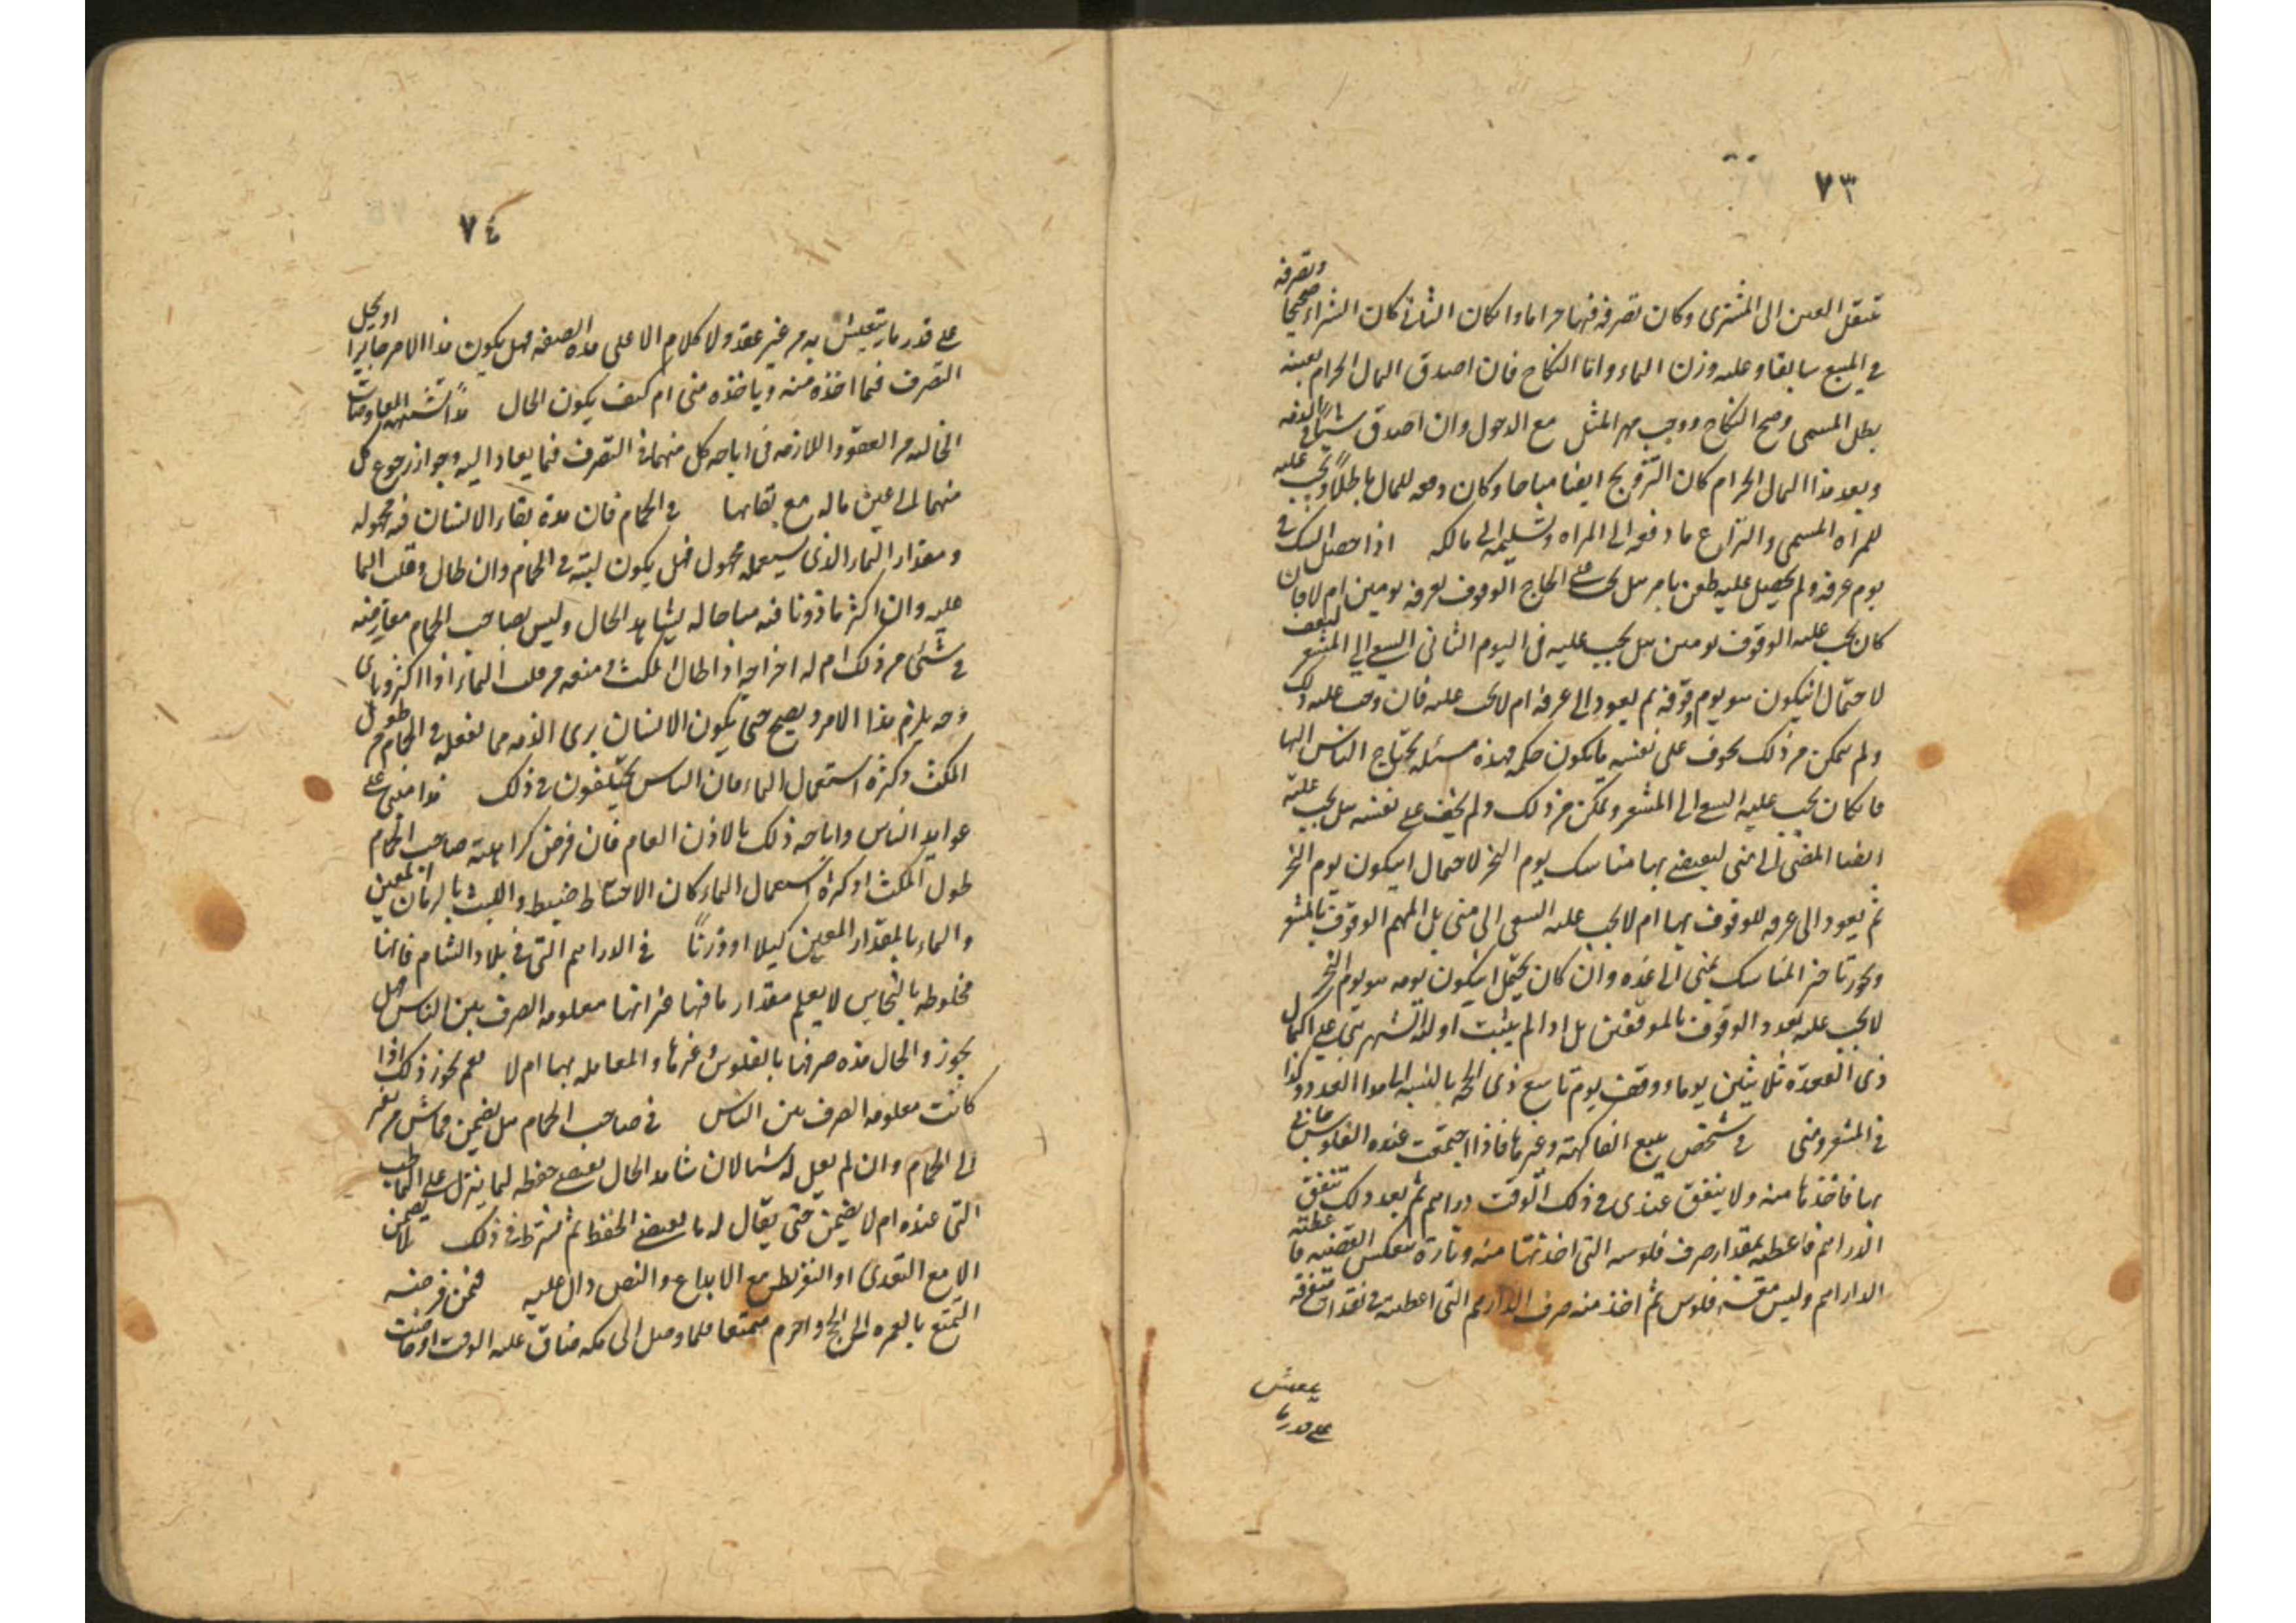 ٧٣
وتصرفه
تنتقل العين الى المشترى وكان تصرفه فيها حراما وان كان الثانى كان الشراء صحيحا
في المبيع سابقا وعليه وزن الماء واما النكاح فان اصدق المال الحرام بعينه
بطل المسمى وصح النكاح ووجب مهر المثل مع الدخول وان اصدق شيئا في الذمه
وبعد هذا المال الحرام كان التزويج ايضا مباحا وكان دفعه للمال باطلا ويجب عليه
للمراه المسمى والتزاع ما دفعه الى المراه وتسليمه الى مالكه اذا حصل الشك في
يوم عرفه ولم يحصل عليه طعن بامر هل يجب على الحاج الوقوف بعرفه يومين ام لا فان
كان يجب عليه الوقوف يومين هل يجب عليه فى اليوم الثانى السعى الى المشعر ليقف
لاحتمال ان يكون هو يوم وقوفه ثم يعود الى عرفه ام لا يجب عليه فان وجب عليه ذلك
ولم يتمكن من ذلك بخوف على نفسه ما يكون حكمه فهذه مسئله يحتاج الناس اليها
فان كان يجب عليه السعى الى المشعر وتمكن من ذلك ولم يخف على نفسه هل يجب عليه
ايضا المضى الى منى ليقضى بها مناسك يوم النحر لاحتمال ان يكون يوم النحر
ثم يعود الى عرفه للوقوف بها ام لا يجب عليه السعى الى منى بل المهم الوقوف بالمشعر
ويجوز تاخير المناسك بمنى الى غده وان كان يحتمل ان يكون يومه هو يوم النحر
لا يجب عليه تعدد الوقوف بالموقفين بل اذا لم يثبت اوله الشهر بنى على اكمال
ذى القعدة ثلاثين يوما ووقف يوم تاسع ذى الحجه بالنسبه الى هذا العدد وكذا
فى المشعر ومنى في شخص يبيع الفاكهة وغيرها فاذا اجتمعت عنده الفلوس
بها فاخذها منه ولا يتفق عندى فى ذلك الوقت دراهم ثم بعد ذلك تتفق
الدراهم فاعطيه بمقدار صرف فلوسه التى اخذتها منه وتارة تنعكس القضيه فاعطيه
الدراهم وليس معه فلوس ثم اخذ منه صرف الدراهم التى اعطيته فى نقدات متفرقه
يعيش
على قدر ما
٧٤
على قدر ما يتعيش به من غير عقد ولا كلام الا على هذه الصفه فهل يكون هذا الامر جايزا او يحل
التصرف فيما اخذه منه وياخذه منى ام كيف يكون الحال هذا تشبه المعاوضات
الخاليه من العقود اللازمه فى اباحه كل منهما فى التصرف فيما يعاد اليه وجواز رجوع كل
منهما الى عين ماله مع بقائها في الحمام فان مدة بقاء الانسان فيه مجهوله
ومقدار الماء الذى يستعمله مجهول فهل يكون لبثه فى الحمام وان طال وقلب الماء
عليه وان اكثر ماذونا فيه مباحا له بشاهد الحال وليس لصاحب الحمام معارضته
في شئى من ذلك ام له اخراجه اذا اطال المكث او منعه من قلب الماء اذا اكثر وباى
وجه يلزم هذا الامر ويصح حتى يكون الانسان برى الذمه مما يفعله فى الحمام من طول
المكث وكثرة استعمال الماء فان الناس يختلفون فى ذلك هذا مبنى على
عوايد الناس واباحه ذلك بالاذن العام فان فرض كراهته صاحب الحمام
طول المكث او كثرة استعمال الماء كان الاحتياط ضبط اللبث بالزمان المعين
والماء بالمقدار المعين كيلا او وزنا في الدراهم التى فى بلاد الشام فانها
مخلوطه بالنحاس لا يعلم مقدار ما فيها غير انها معلومه الصرف بين الناس فهل
يجوز والحال هذه صرفها بالفلوس وغيرها والمعامله بها ام لا نعم يجوز ذلك اذا
كانت معلومه الصرف بين الناس في صاحب الحمام هل يضمن قماش من يعبر
الى الحمام وان لم يقل له شيئا لان شاهد الحال يقضى حفظه لما ينزل على
التى عنده ام لا يضمن حتى يقال له ما يقتضى الحفظ ثم يشترط فى ذلك لا يضمن
الا مع التعدى او التفريط مع الايداع والنص دال عليه فيمن فرضه
التمتع بالعمره الى الحج واحرم متمتعا فلما وصل الى مكه ضاق عليه الوقت او حاضت